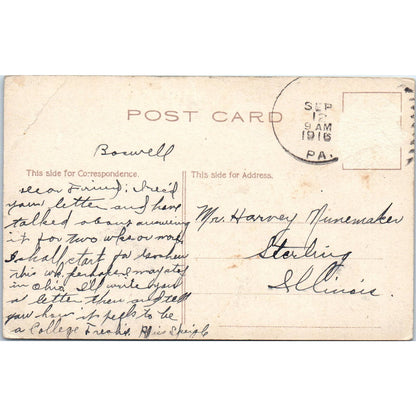 POST CARD
SEP
12
9 AM
1916
PA.
Boswell
This side for Correspondence.
Dear Friend: I rec'd
your letter and have
talked about answering
it for two wks or more.
I shall start to
this wk. perhaps. I may stop
in Ohio. I'll write you
a letter then and tell
you how it feels to be
a College Freshie.
This side for Address.
Mr. Harvey Nunemaker
Sterling
Illinois.